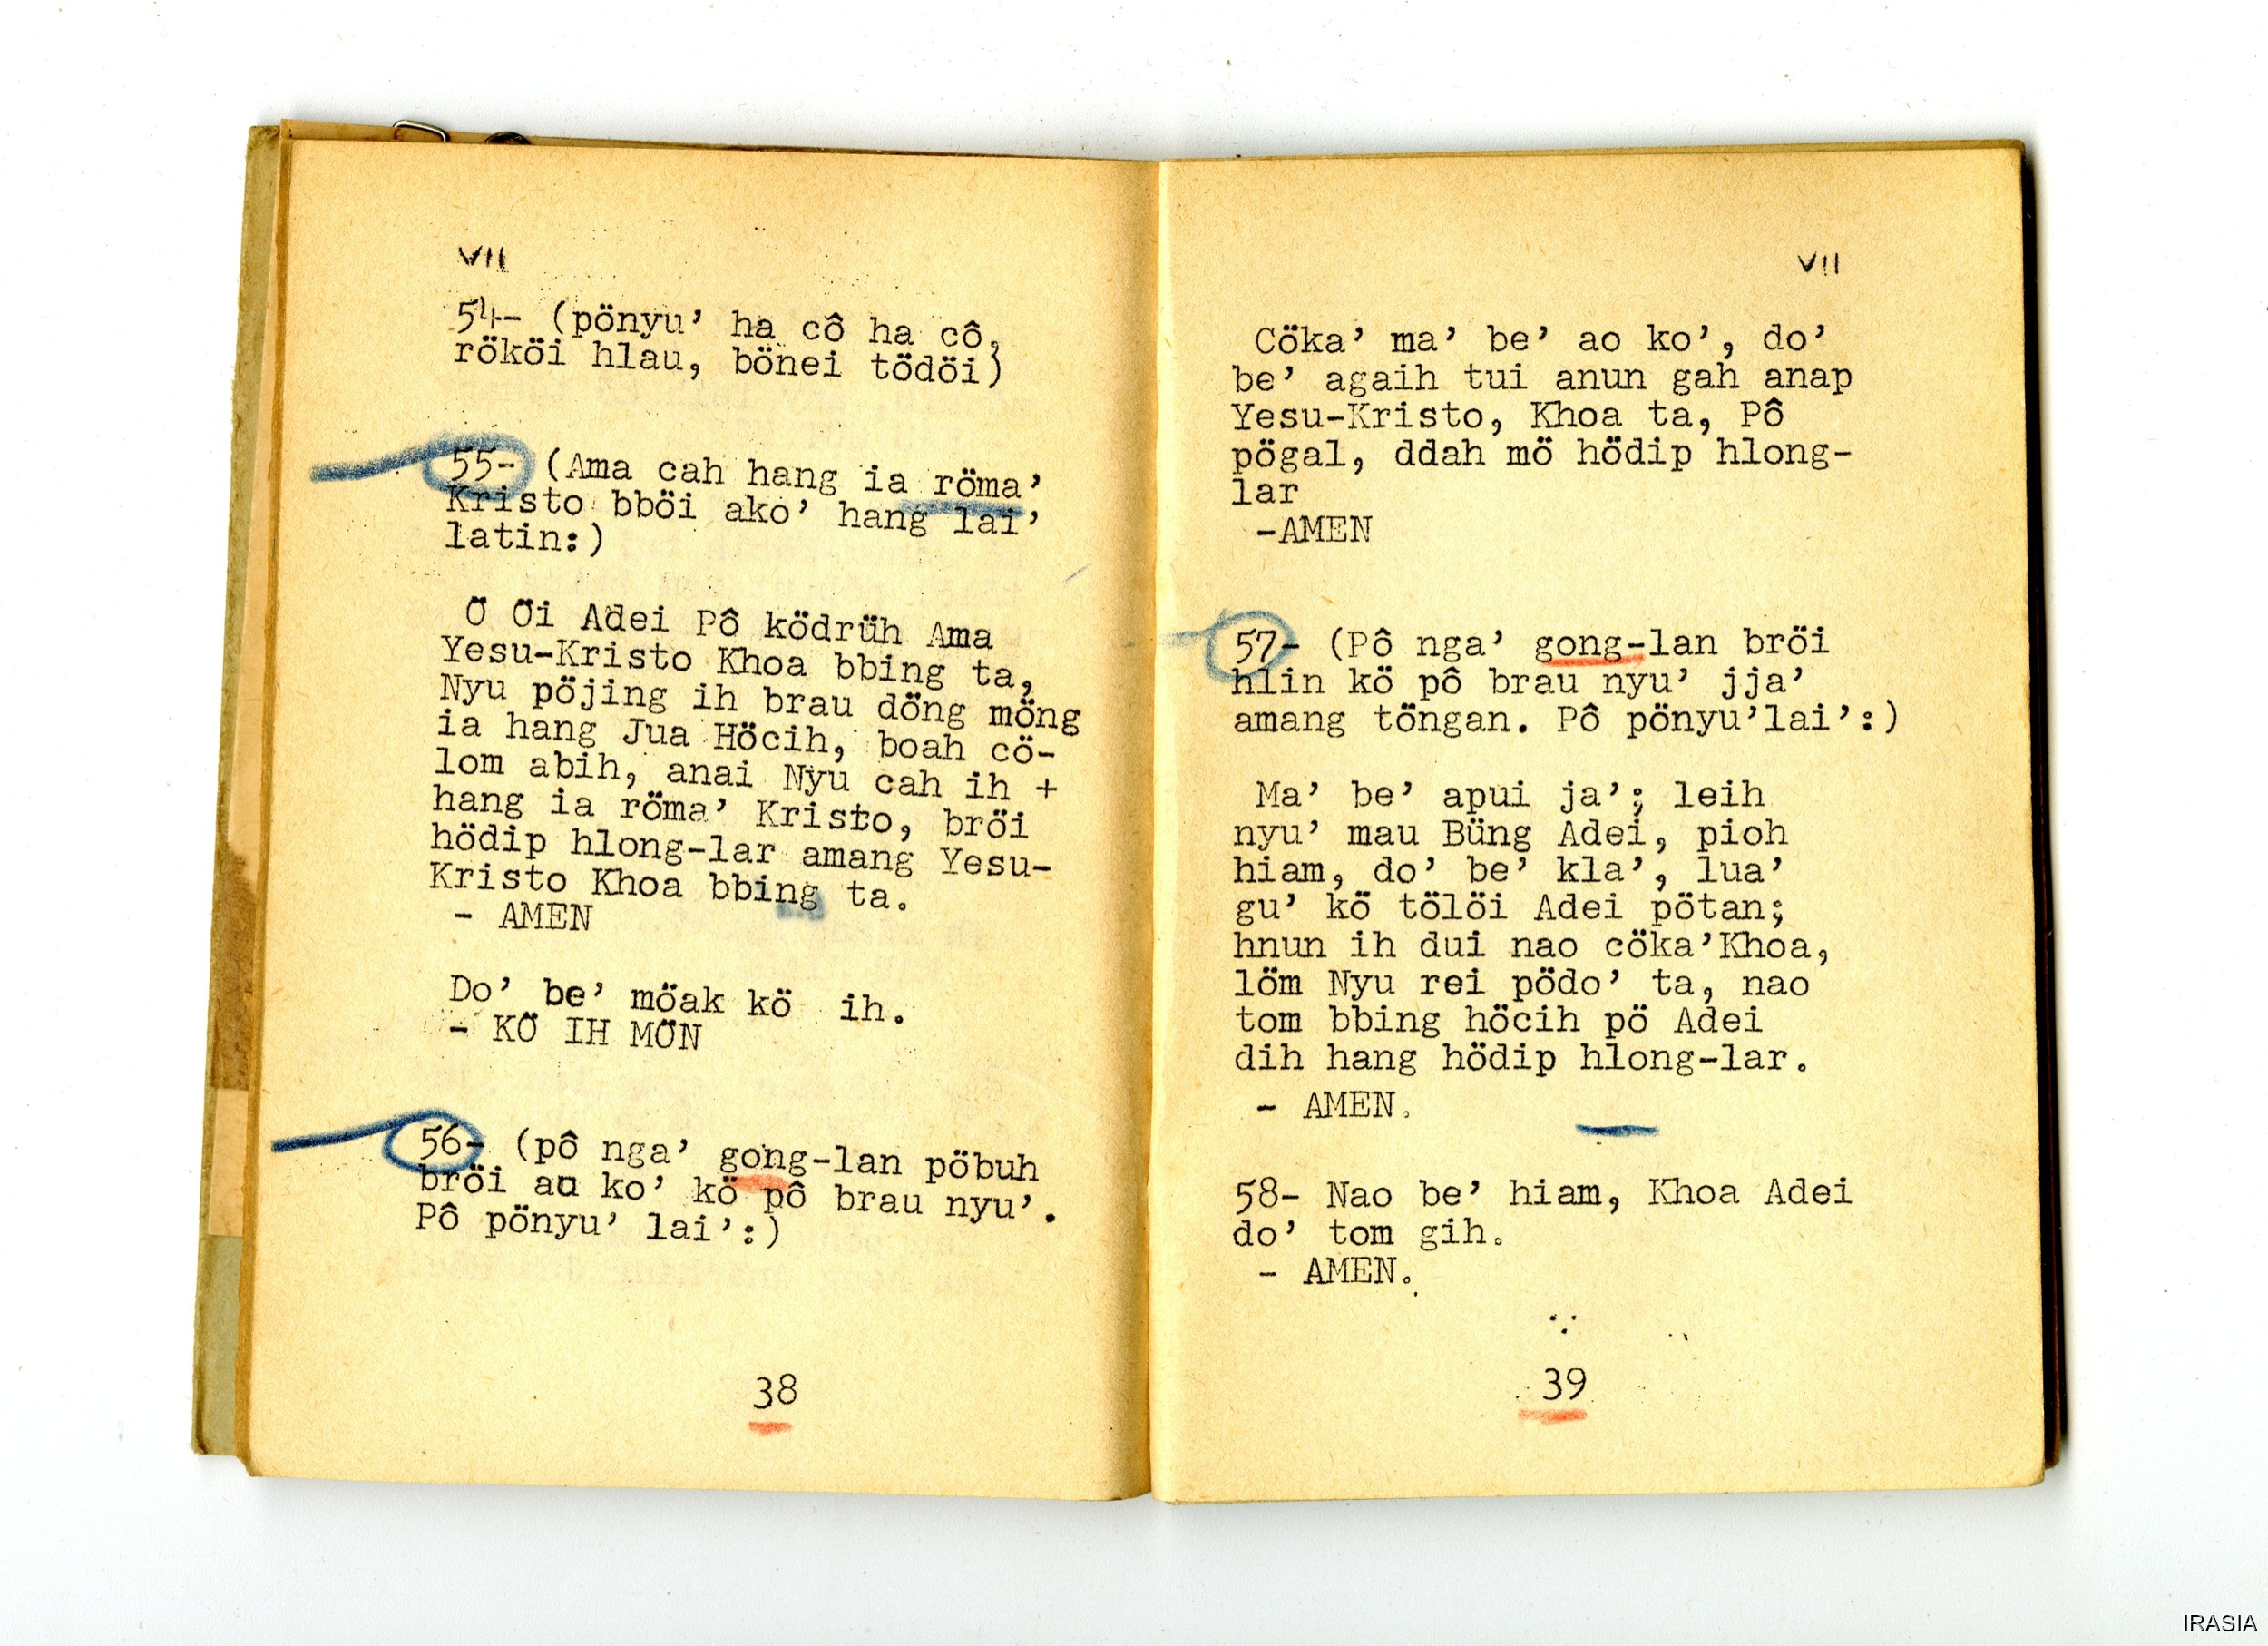 VII
54- (pönyu’ ha cô ha cô,
rököi hlau, bönei tödöi)
55- (Ama cah hang ia röma’
Kristo bböi ako’ hang lai’
latin:)
Ö Öi Adei Pô ködrüh Ama
Yesu-Kristo Khoa bbing ta,
Nyu pöjing ih brau dö̂ng mö̂ng
ia hang Jua Höcih, boah cö-
lom abih, anai Nyu cah ih +
hang ia röma’ Kristo, bröi
hödip hlong-lar amang Yesu-
Kristo Khoa bbing ta.
- AMEN
Do’ be’ möak kö ih.
- KÖ IH MÖN
56- (pô nga’ gong-lan pöbuh
bröi au ko’ kö pô brau nyu’.
Pô pönyu’ lai’:)
38
VII
Cöka’ ma’ be’ ao ko’, do’
be’ agaih tui anun gah anap
Yesu-Kristo, Khoa ta, Pô
pögal, ddah mö hödip hlong-
lar
-AMEN
57- (Pô nga’ gong-lan bröi
hlin kö pô brau nyu’ jja’
amang töngan. Pô pönyu’lai’:)
Ma’ be’ apui ja’; leih
nyu’ mau Büng Adei, pioh
hiam, do’ be’ kla’, lua’
gu’ kö tölöi Adei pötan;
hnun ih dui nao cöka’Khoa,
löm Nyu rei pödo’ ta, nao
tom bbing höcih pö Adei
dih hang hödip hlong-lar.
- AMEN.
58- Nao be’ hiam, Khoa Adei
do’ tom gih.
- AMEN.
39
IRASIA